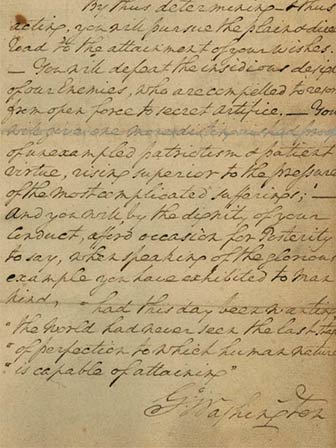 By thus determining & thus
acting, you will pursue the plain & direc
road to the attainment of your wishes.
— You will defeat the insidious desig
of our Enemies, who are compelled to resor
from open force to secret Artifice. — You
will give one more distinguished proof
of unexampled patriotism & patient
virtue, rising superior to the pressure
of the most complicated sufferings; —
And you will by the dignity of your
Conduct, afford occasion for Posterity
to say, when speaking of the glorious
example you have exhibited to Man
kind, "had this day been wanting
"the World had never seen the last stage
"of perfection to which human nature
"is capable of attaining"
G:Washington